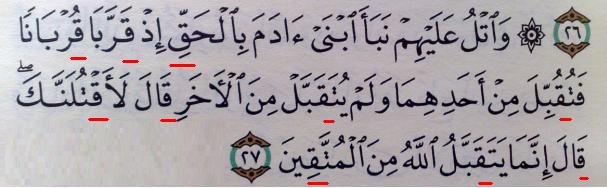 ٢٦ ۞ وَٱتْلُ عَلَيْهِمْ نَبَأَ ٱبْنَىْ ءَادَمَ بِٱلْحَقِّ إِذْ قَرَّبَا قُرْبَانًا
فَتُقُبِّلَ مِنْ أَحَدِهِمَا وَلَمْ يُتَقَبَّلْ مِنَ ٱلْـَٔاخَرِ قَالَ لَأَقْتُلَنَّكَ ۖ
قَالَ إِنَّمَا يَتَقَبَّلُ ٱللَّهُ مِنَ ٱلْمُتَّقِينَ ٢٧